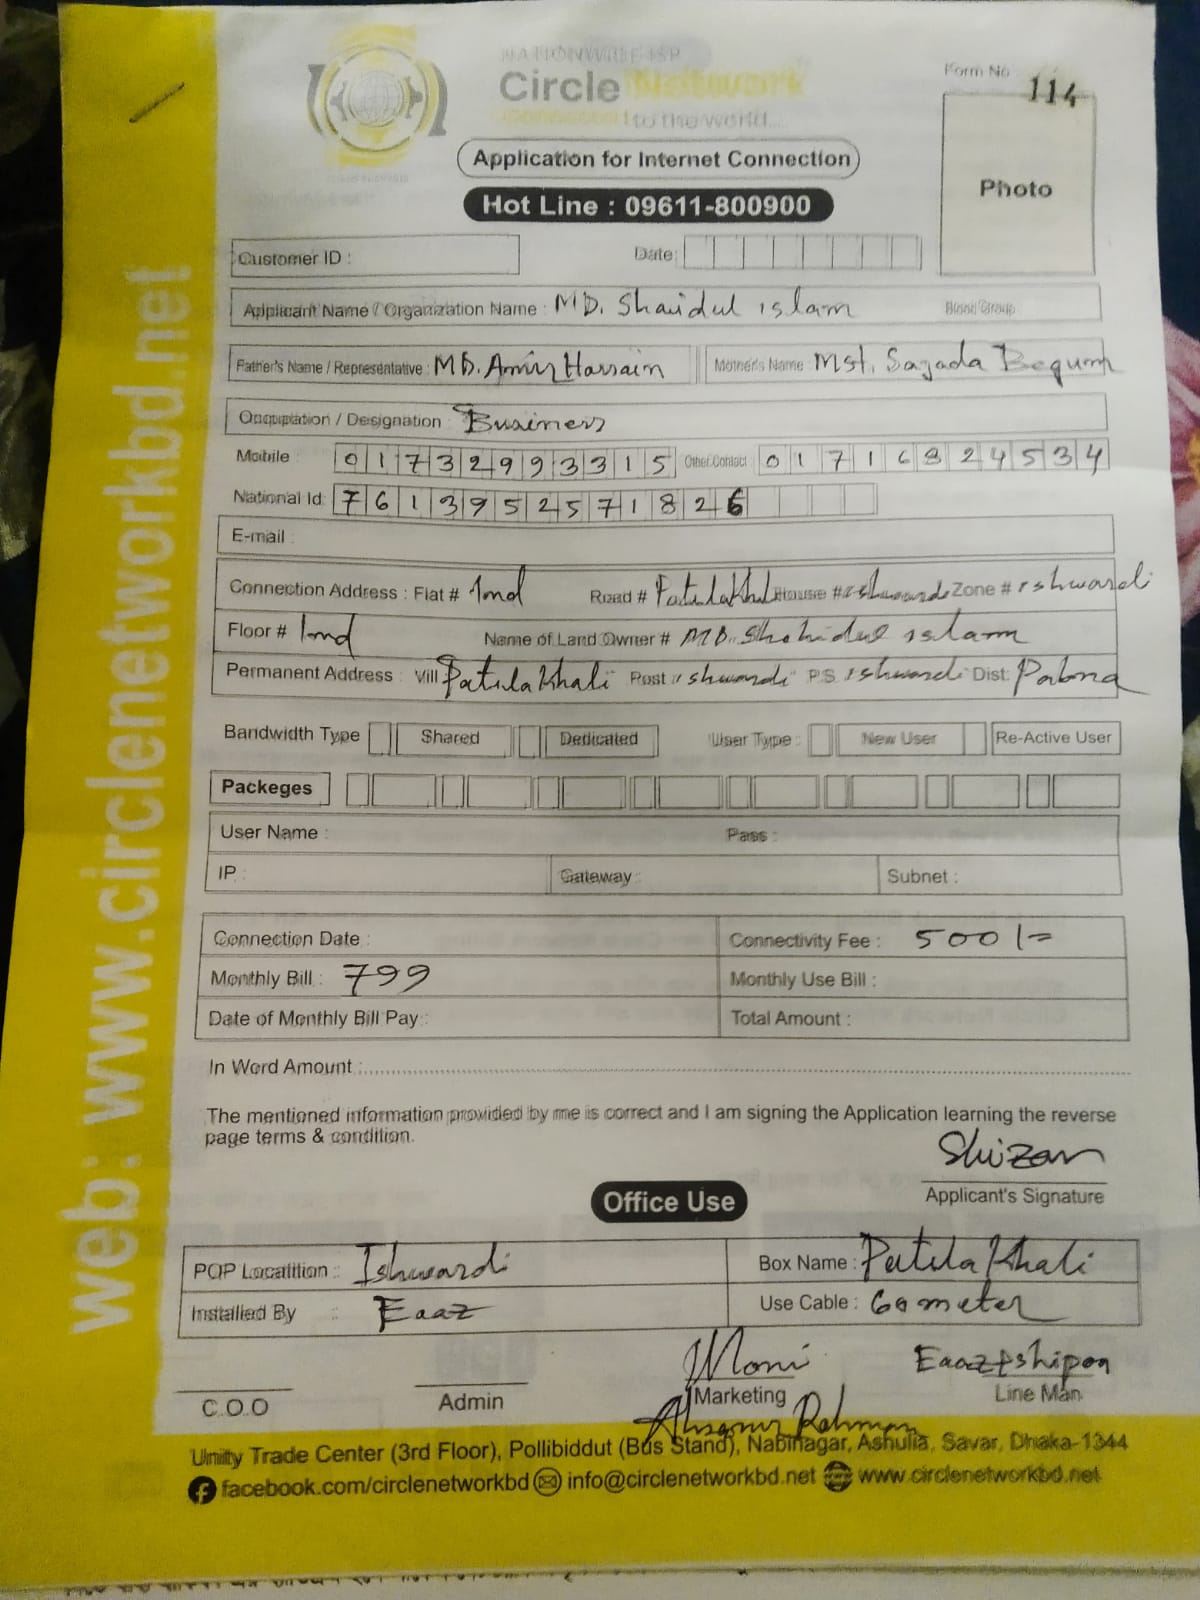 NATIONWIDE ISP
Circle Network
Connected to the world....
Form No 114
Application for Internet Connection
Photo
Hot Line : 09611-800900
Customer ID :
Date:
Applicant Name / Organization Name : MD. Shaidul islam Blood Group
Father's Name / Representative : MD. Amir Hossain Mother's Name : Mst. Sazada Begum
Occupation / Designation : Business
Mobile 01732993315 Other Contact 01716824534
National Id: 7613952571826
E-mail :
Connection Address : Flat # 1nd Road # Patilakhali House # ishwardi Zone # ishwardi
Floor # 1nd Name of Land Owner # MD. Shahidul islam
Permanent Address : Vill Patilakhali Post : ishwardi P.S ishwardi Dist: Pabna
Bandwidth Type Shared Dedicated User Type : New User Re-Active User
Packeges
User Name : Pass :
IP : Gateway : Subnet :
Connection Date : Connectivity Fee : 500/=
Monthly Bill : 799 Monthly Use Bill :
Date of Monthly Bill Pay : Total Amount :
In Word Amount :
The mentioned information provided by me is correct and I am signing the Application learning the reverse
page terms & condition.
Shizan
Applicant's Signature
Office Use
POP Locatition : Ishwardi Box Name : Patilakhali
Installed By : Eaaz Use Cable : 60 meter
Moni Eaaz+shipon
C.O.O Admin Marketing Line Man
Ahsanur Rahman
Unity Trade Center (3rd Floor), Pollibiddut (Bus Stand), Nabinagar, Ashulia, Savar, Dhaka-1344
facebook.com/circlenetworkbd info@circlenetworkbd.net www.circlenetworkbd.net
web: www.circlenetworkbd.net